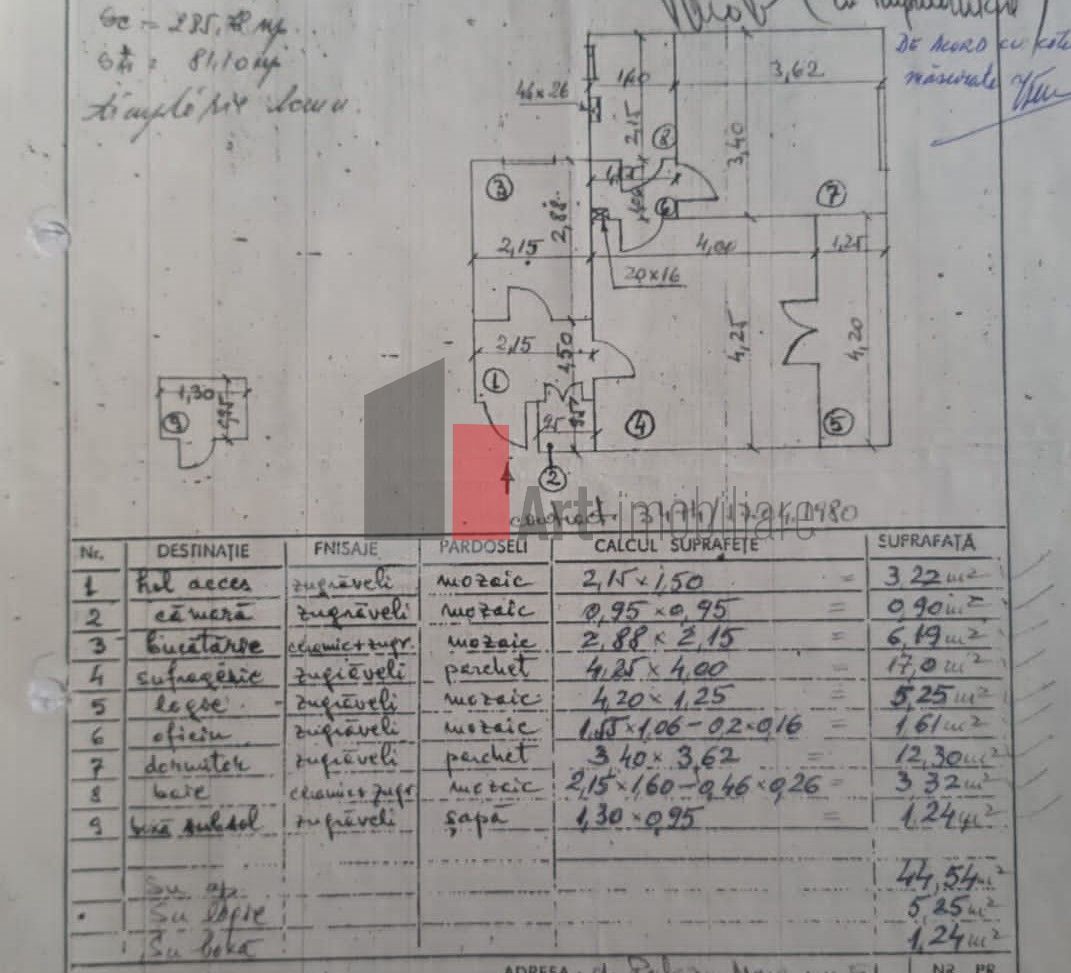 Sc = 285,78 mp.
81,10 mp
DE ACORD cu cote
măsurate
46×26
1,60
3,62
2,15
8
3,40
3
6
7
2,88
2,15
4,00
1,25
20×16
2,15
1,50
4,25
4,20
1
1,30
9
0,95
95
95
4
5
2
Art imobiliare
contract 1980
Nr. DESTINAȚIE FNISAJE PARDOSELI CALCUL SUPRAFEȚE SUPRAFAȚA
1 hol acces zugrăveli mozaic 2,15×1,50 = 3,22 m²
2 cămară zugrăveli mozaic 0,95×0,95 = 0,90 m²
3 bucătărie ceramic+zugr. mozaic 2,88×2,15 = 6,19 m²
4 sufragerie zugrăveli parchet 4,25×4,00 = 17,0 m²
5 logie zugrăveli mozaic 4,20×1,25 = 5,25 m²
6 oficiu zugrăveli mozaic 1,55×1,06-0,2×0,16 = 1,61 m²
7 dormitor zugrăveli parchet 3,40×3,62 = 12,30 m²
8 baie ceramic+zugr mozaic 2,15×1,60-0,46×0,26 = 3,32 m²
9 boxă subsol zugrăveli șapă 1,30×0,95 = 1,24 m²
Su ap 44,54 m²
Su logie 5,25 m²
Su boxă 1,24 m²
ADRESA NR. PR